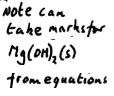 Note can
take marks for
Mg(OH)₂(s)
from equations